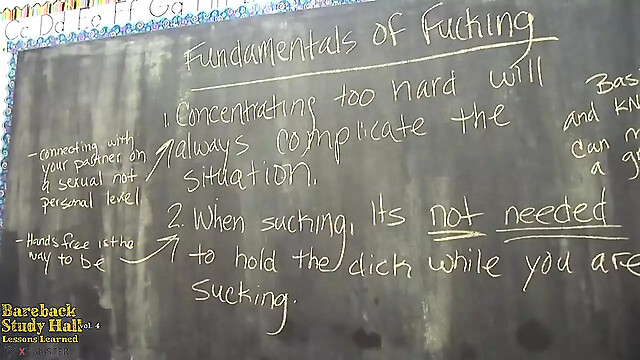 Cc Dd Ee Ff Gg
Fundamentals of Fucking
1. Concentrating too hard will
always complicate the
situation.
- Connecting with
your partner on
a sexual not
personal level
2. When sucking, Its not needed
to hold the dick while you are
sucking.
- Hands free is the
way to be
and
can
a
Bareback
Study Hall vol. 4
Lessons Learned